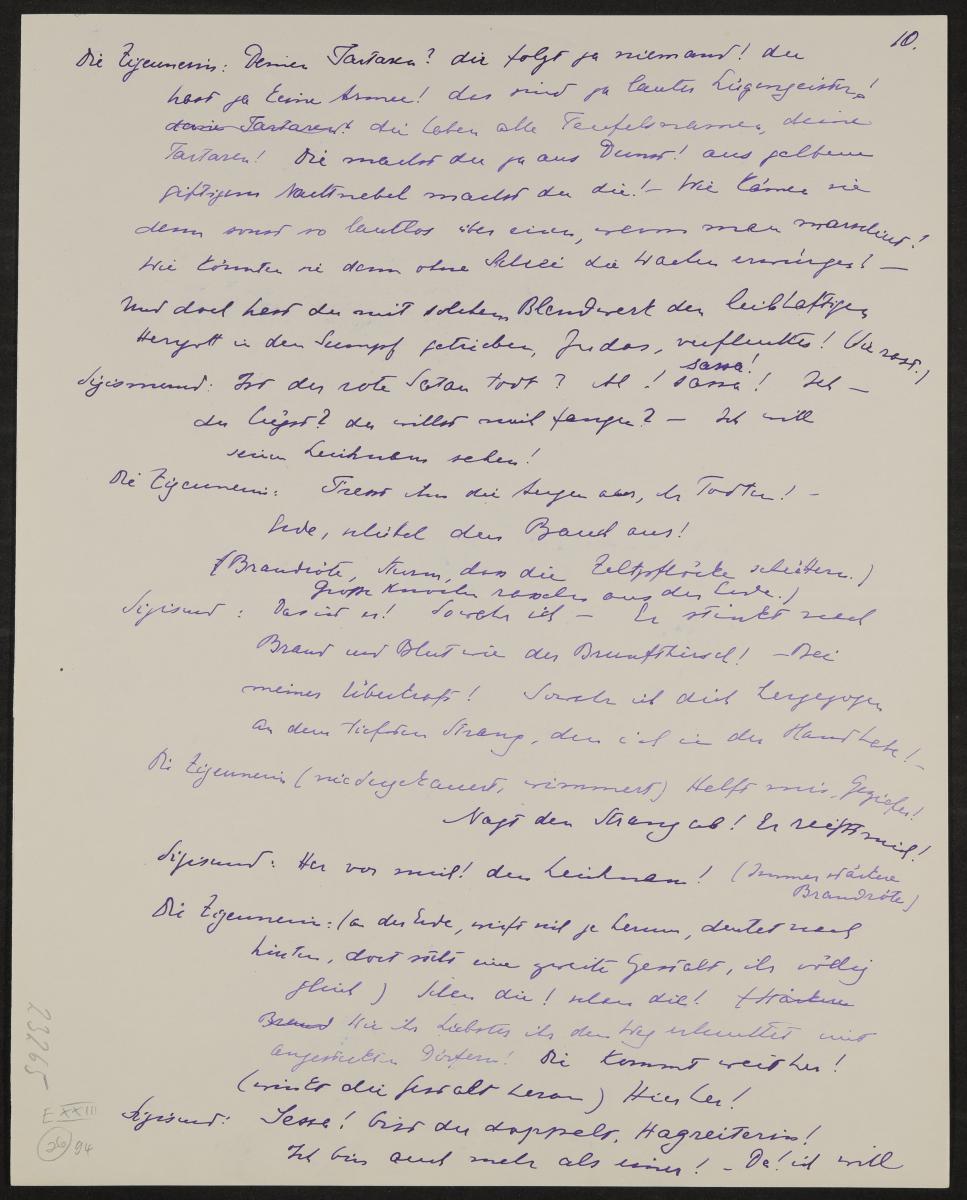 10.
Die Zigeunerin: Deinen Tartaren? dir folgt ja niemand! du
hast ja keine Armee! das sind ja lauter Lügengeister!
deine Tartaren! die haben alle Teufelsnamen, deine
Tartaren! Die machst du ja aus Dunst! aus gelbem
giftigem Nachtnebel machst du die! – Wie kämen sie
denn sonst so lautlos über einen, wenn man marschiert!
Wie könnten sie denn ohne Schrei die Wachen erwürgen! –
Und doch hast du mit solchem Blendwerk den leibhaftigen
Herrgott in den Sumpf getrieben, Judas, verfluchter! (Sie rast.)
sassa!
Sigismund: Ist der rote Satan todt? Ah! sassa! Ich –
du lügst? du willst mich fangen? – Ich will
seinen Leichnam sehen!
Die Zigeunerin: Fresst ihm die Augen aus, ihr Todten! –
Erde, schüttel den Bauch aus!
(Brandröte, Sturm, dass die Zeltpflöcke schüttern.)
Große Knochen rasseln aus der Erde.)
Sigismund: Das ist er! So wahr ich – Er stinkt nach
Brand und Blut wie der Brunfthirsch! – Bei
meiner Überkraft! So wahr ich dich hergezogen
an dem tiefsten Strang, den ich in der Hand habe! –
Die Zigeunerin (niedergekauert, wimmert) Helft mir, Geziefer!
Nagt den Strang ab! Er reisst mich!
Sigismund: Her vor mich! den Leichnam! (Immer stärkere
Brandröte)
Die Zigeunerin: (an der Erde, wirft sich jäh herum, deutet nach
hinten, dort steht eine zweite Gestalt, ihr völlig
gleich) Schau die! schau die! (Stärkere
Brand Wie ihr Liebster ihr den Weg erleuchtet mit
angesteckten Dörfern! Die kommt weither!
(winkt die Gestalt heran) Hierher!
Sigismund: Sessa! bist du doppelt, Hagreiterin!
Ich bin auch mehr als einer! – Da! ich will
23265
E XXIII
94